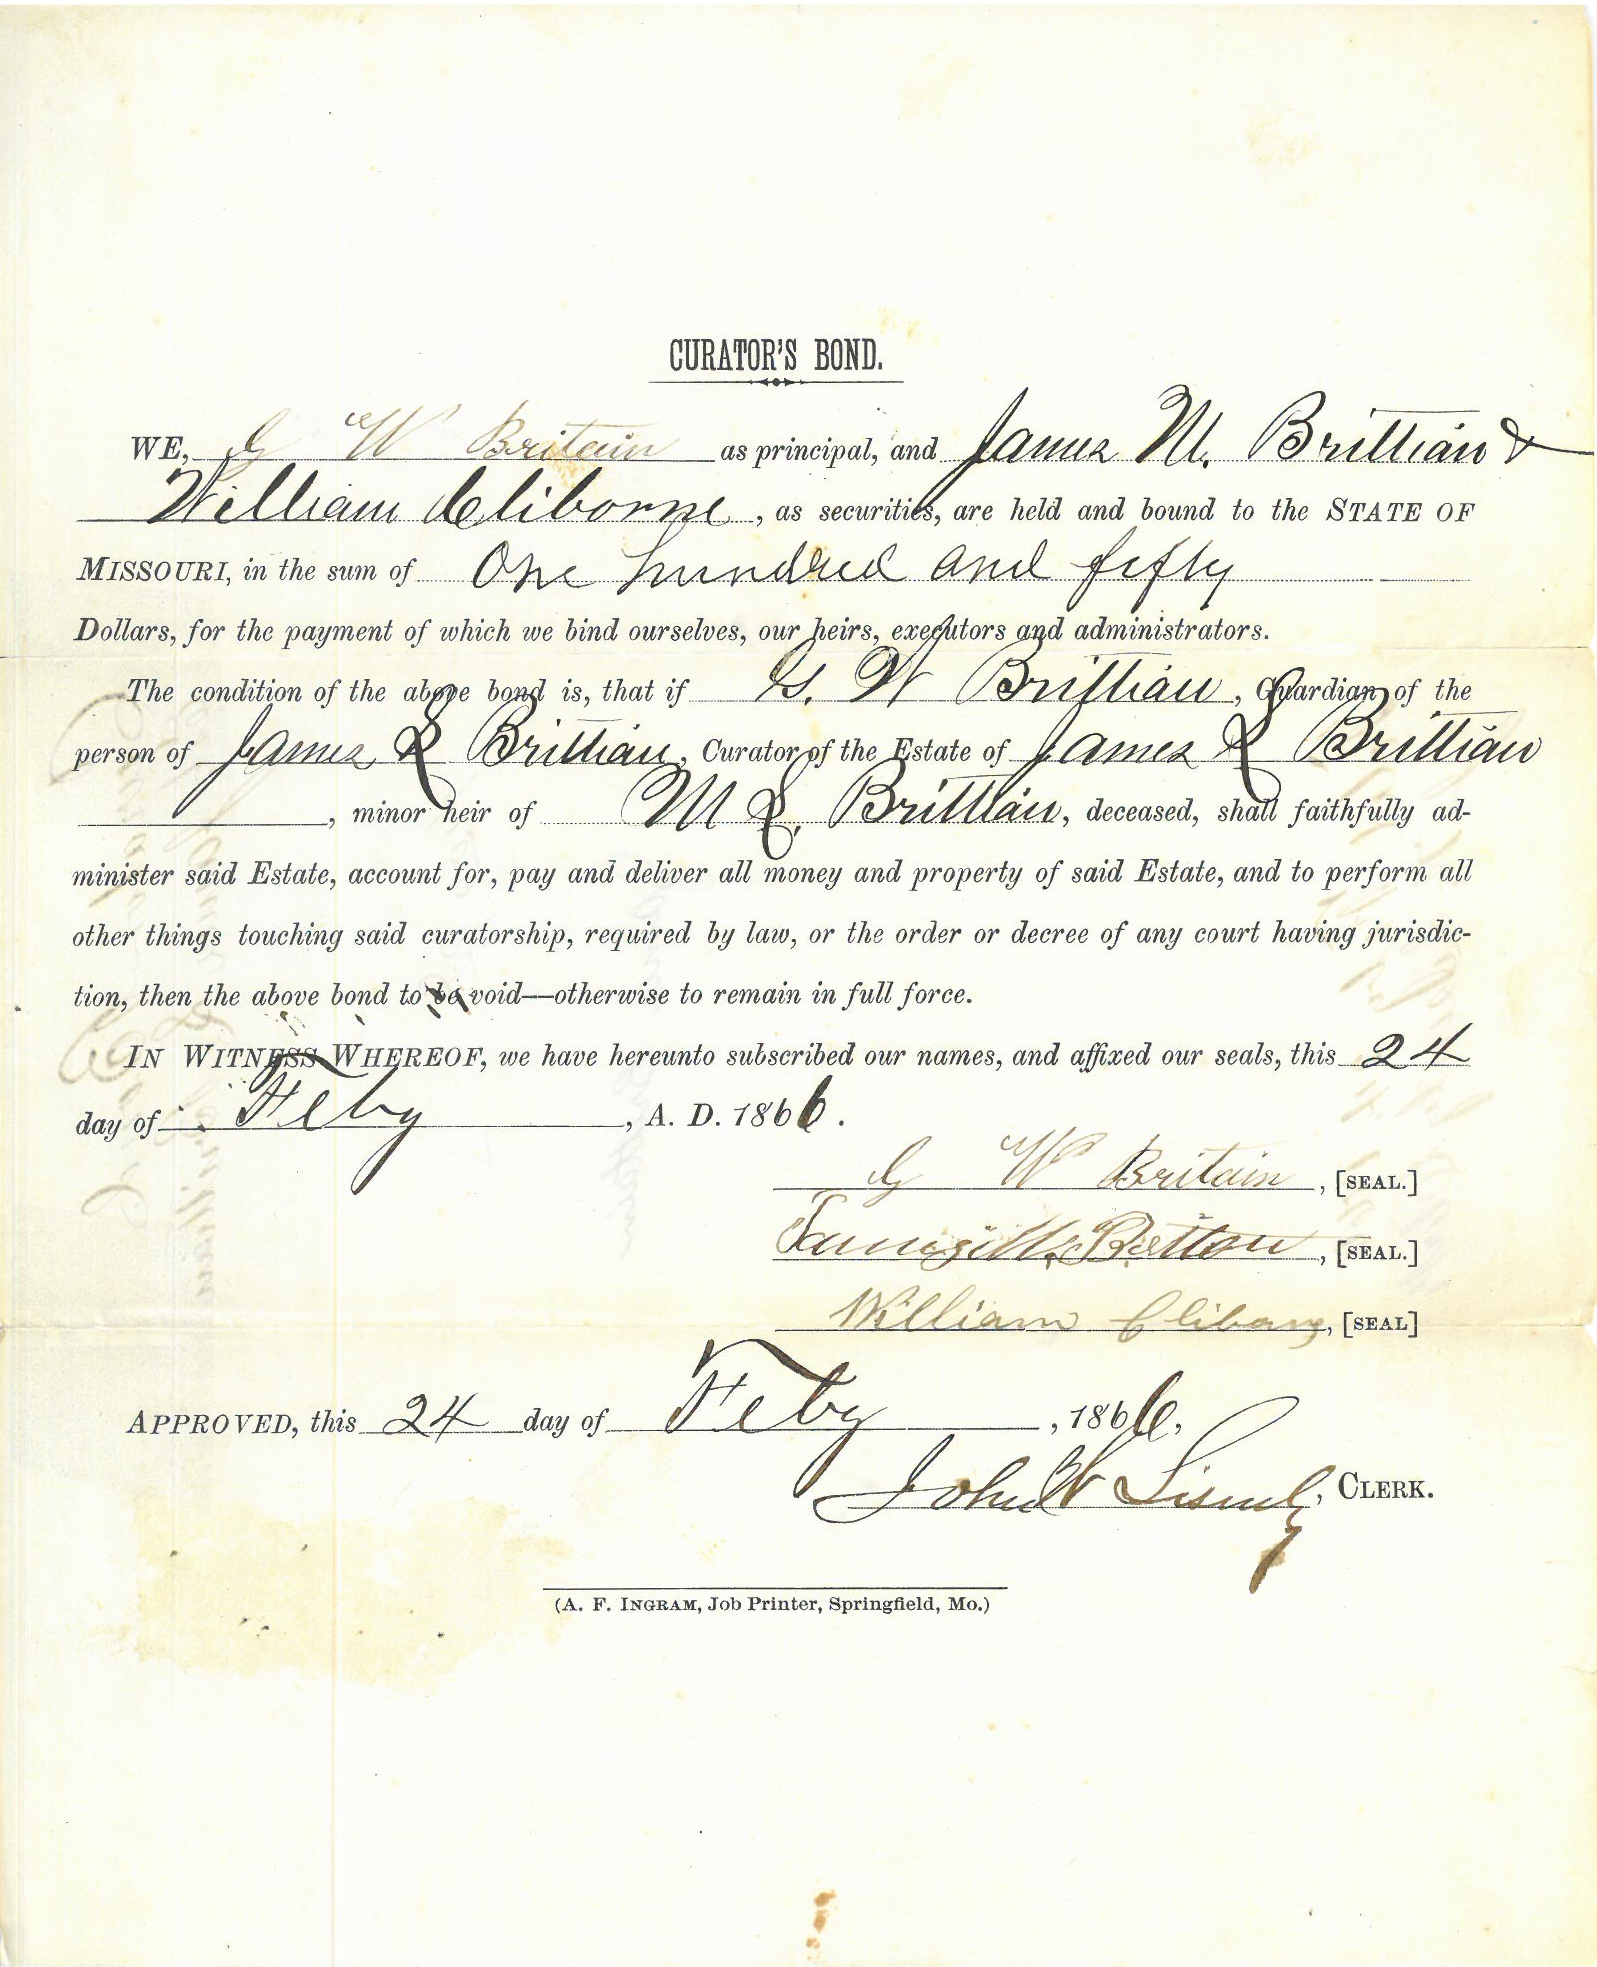 CURATOR'S BOND.
WE, G W Britain as principal, and James M. Brittian &
William Cliborne, as securities, are held and bound to the STATE OF
MISSOURI, in the sum of One hundred and fifty
Dollars, for the payment of which we bind ourselves, our heirs, executors and administrators.
The condition of the above bond is, that if G. W Brittian, Guardian of the
person of James L Brittian, Curator of the Estate of James L Brittian
, minor heir of M L. Brittian, deceased, shall faithfully ad-
minister said Estate, account for, pay and deliver all money and property of said Estate, and to perform all
other things touching said curatorship, required by law, or the order or decree of any court having jurisdic-
tion, then the above bond to be void—otherwise to remain in full force.
IN WITNESS WHEREOF, we have hereunto subscribed our names, and affixed our seals, this 24
day of Feby, A. D. 1866.
G W Britain, [SEAL.]
[SEAL.]
William Clibane, [SEAL]
APPROVED, this 24 day of Feby, 1866,
John W Lisenby, CLERK.
(A. F. INGRAM, Job Printer, Springfield, Mo.)